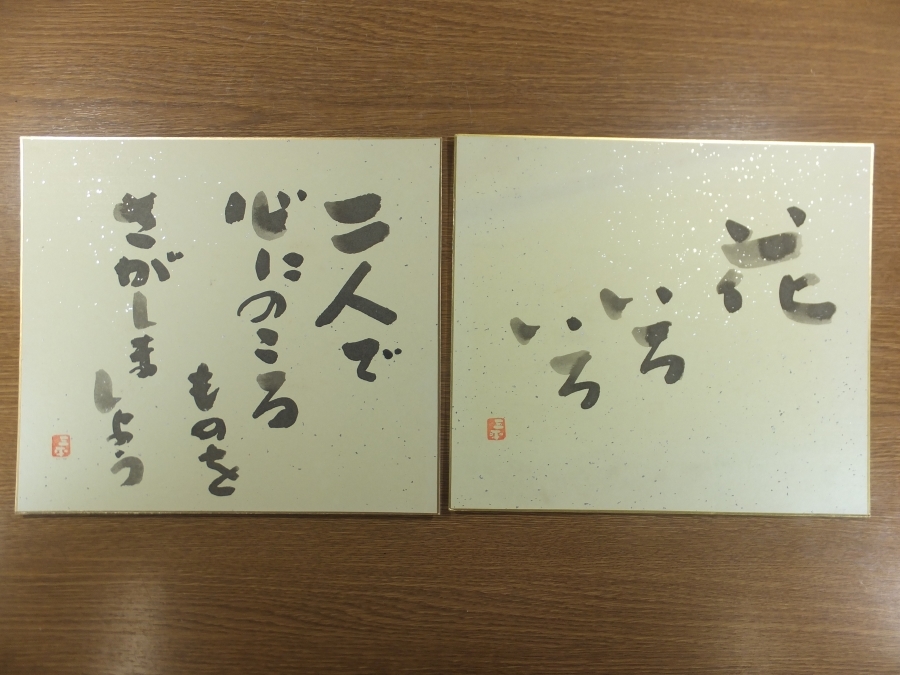 花
いろ
いろ
二人で
心にのころ
ものを
さがしま
しょう